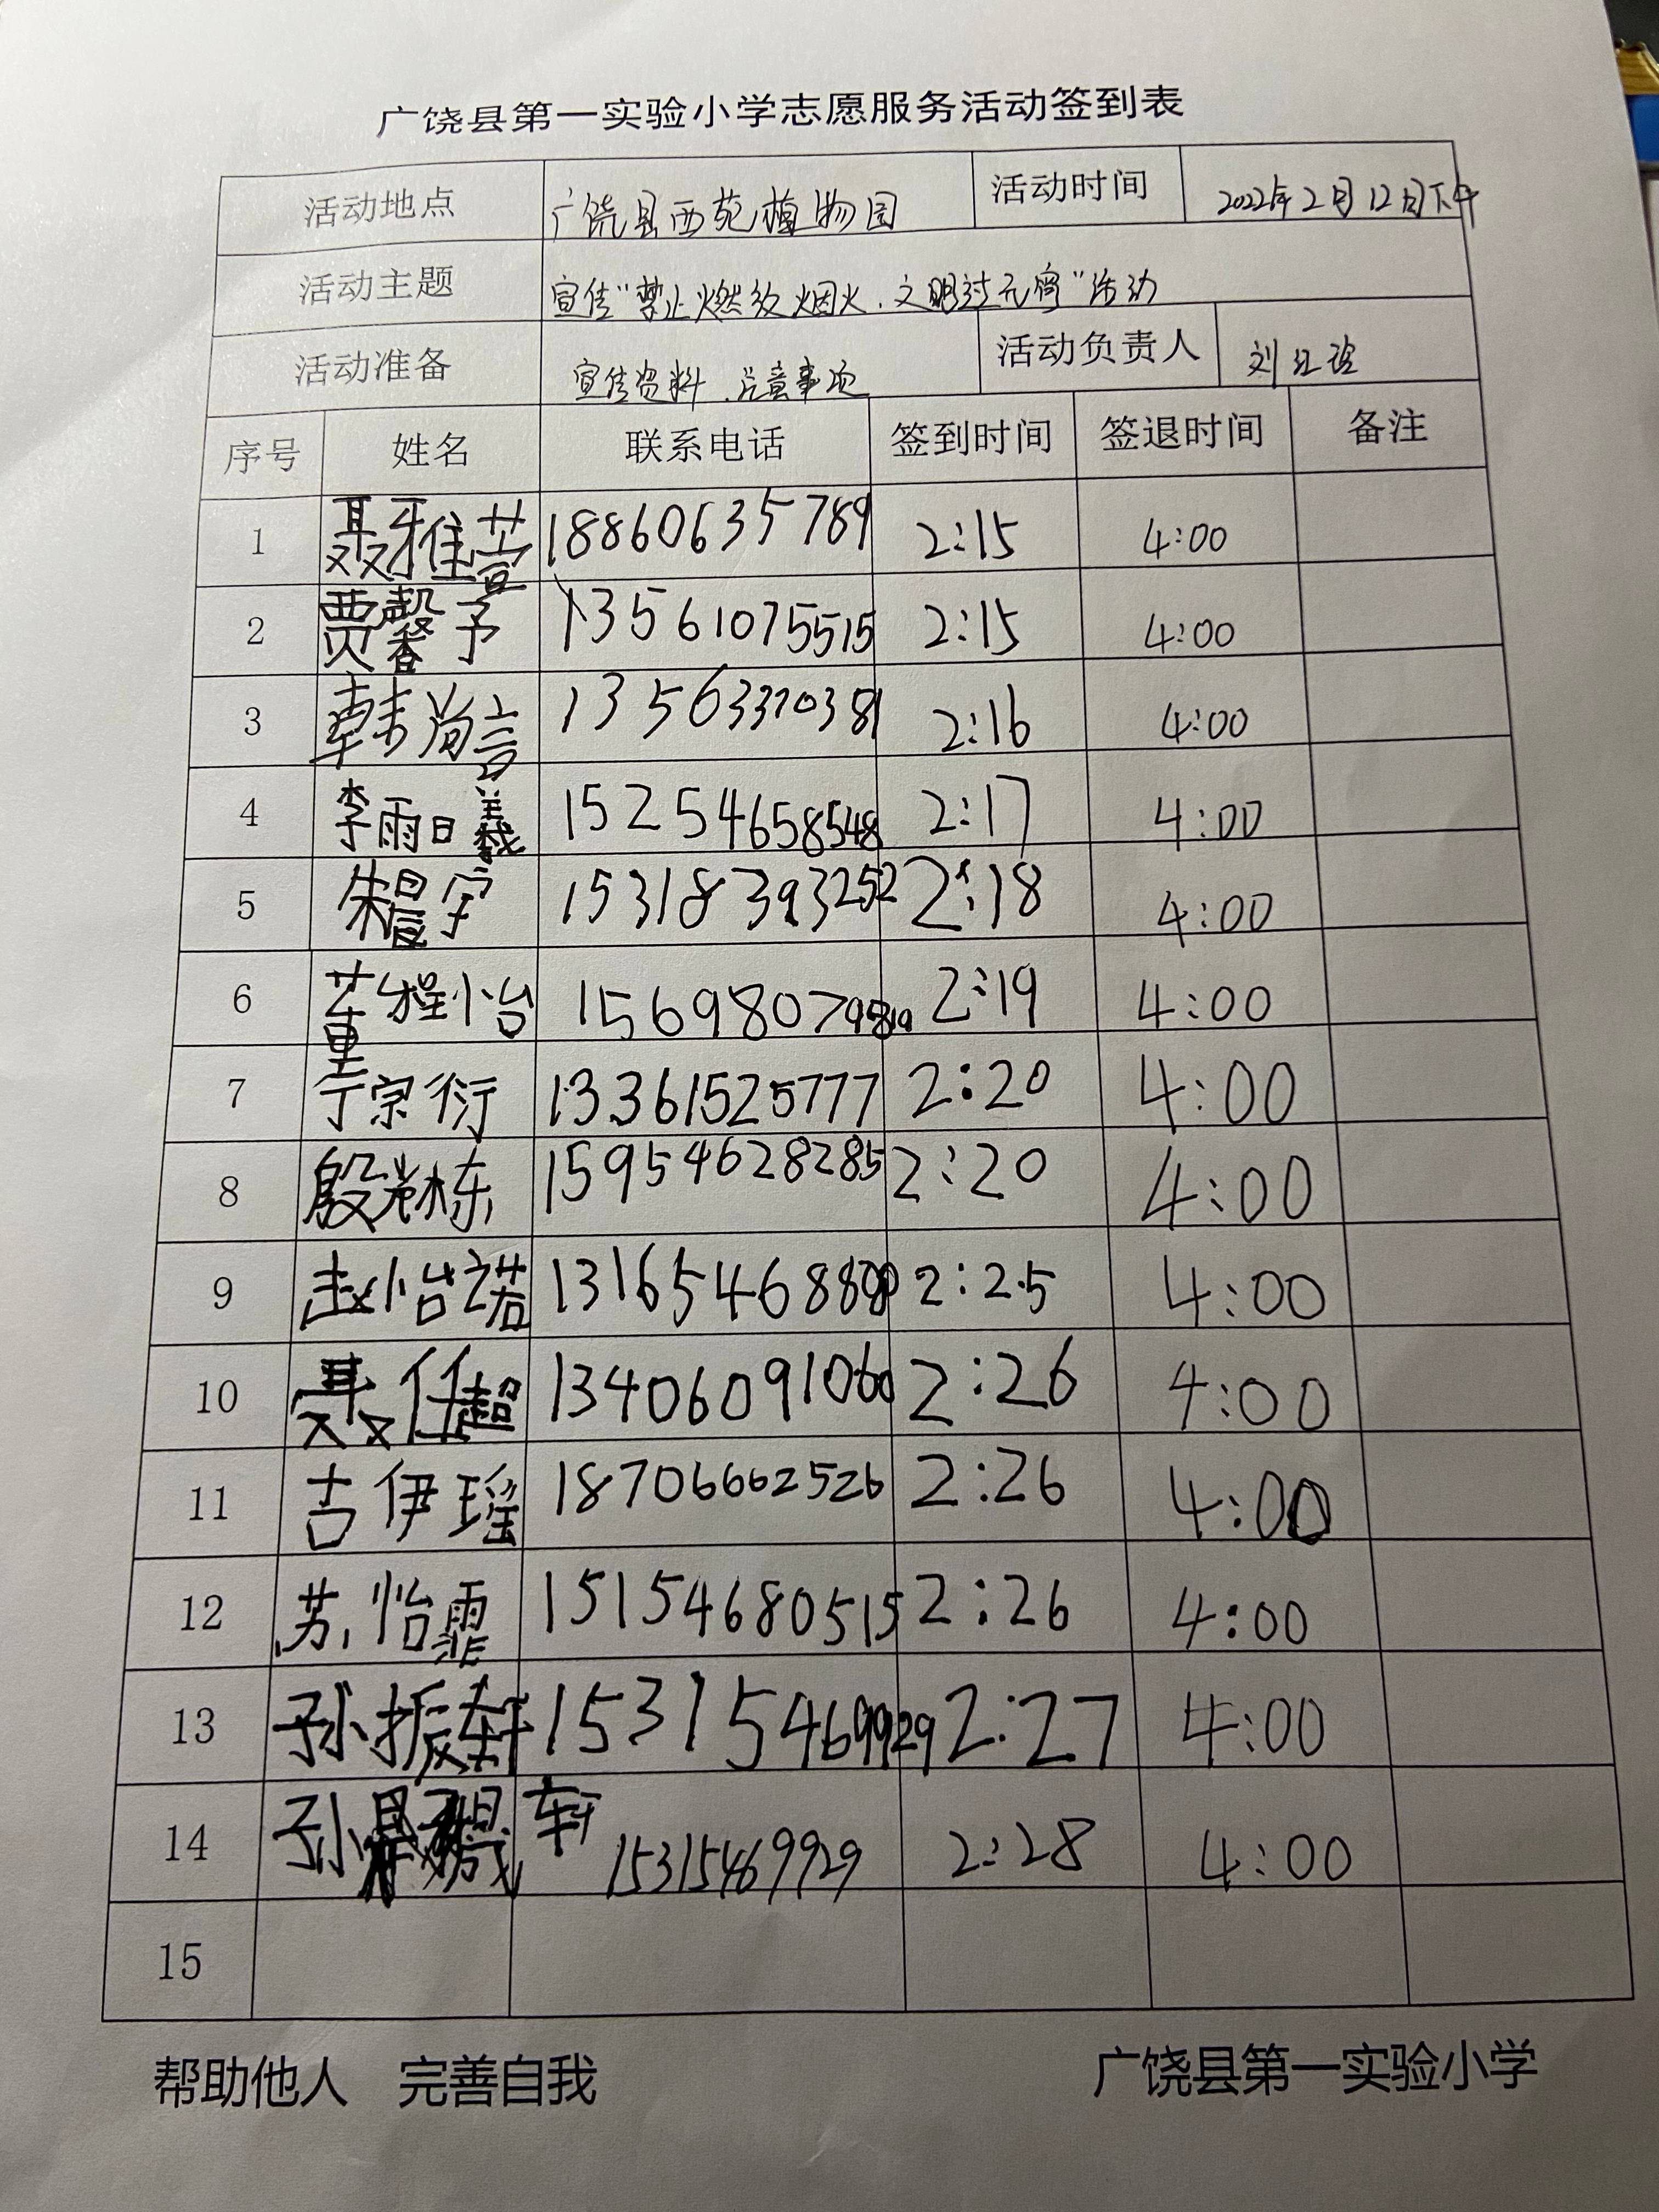 广饶县第一实验小学志愿服务活动签到表
活动地点 广饶县西苑植物园 活动时间 2022年2月12日下午
活动主题 宣传“禁止燃放烟火、文明过元宵”活动
活动准备 宣传资料、注意事项 活动负责人 刘红
序号 姓名 联系电话 签到时间 签退时间 备注
1 聂雅萱 18860635789 2:15 4:00
2 贾馨予 13561075515 2:15 4:00
3 韩尚言 13563370381 2:16 4:00
4 李雨曦 15254658548 2:17 4:00
5 朱晨宇 15318393252 2:18 4:00
6 董程怡 2:19 4:00
7 于宗衍 13361525777 2:20 4:00
8 殷 栋 15954628285 2:20 4:00
9 赵怡诺 2:25 4:00
10 聂仟超 13406091060 2:26 4:00
11 吉伊瑶 18706662526 2:26 4:00
12 苏怡霏 15154680515 2:26 4:00
13 孙振轩 15315469929 2:27 4:00
14 孙 轩 15315469929 2:28 4:00
15
帮助他人 完善自我 广饶县第一实验小学